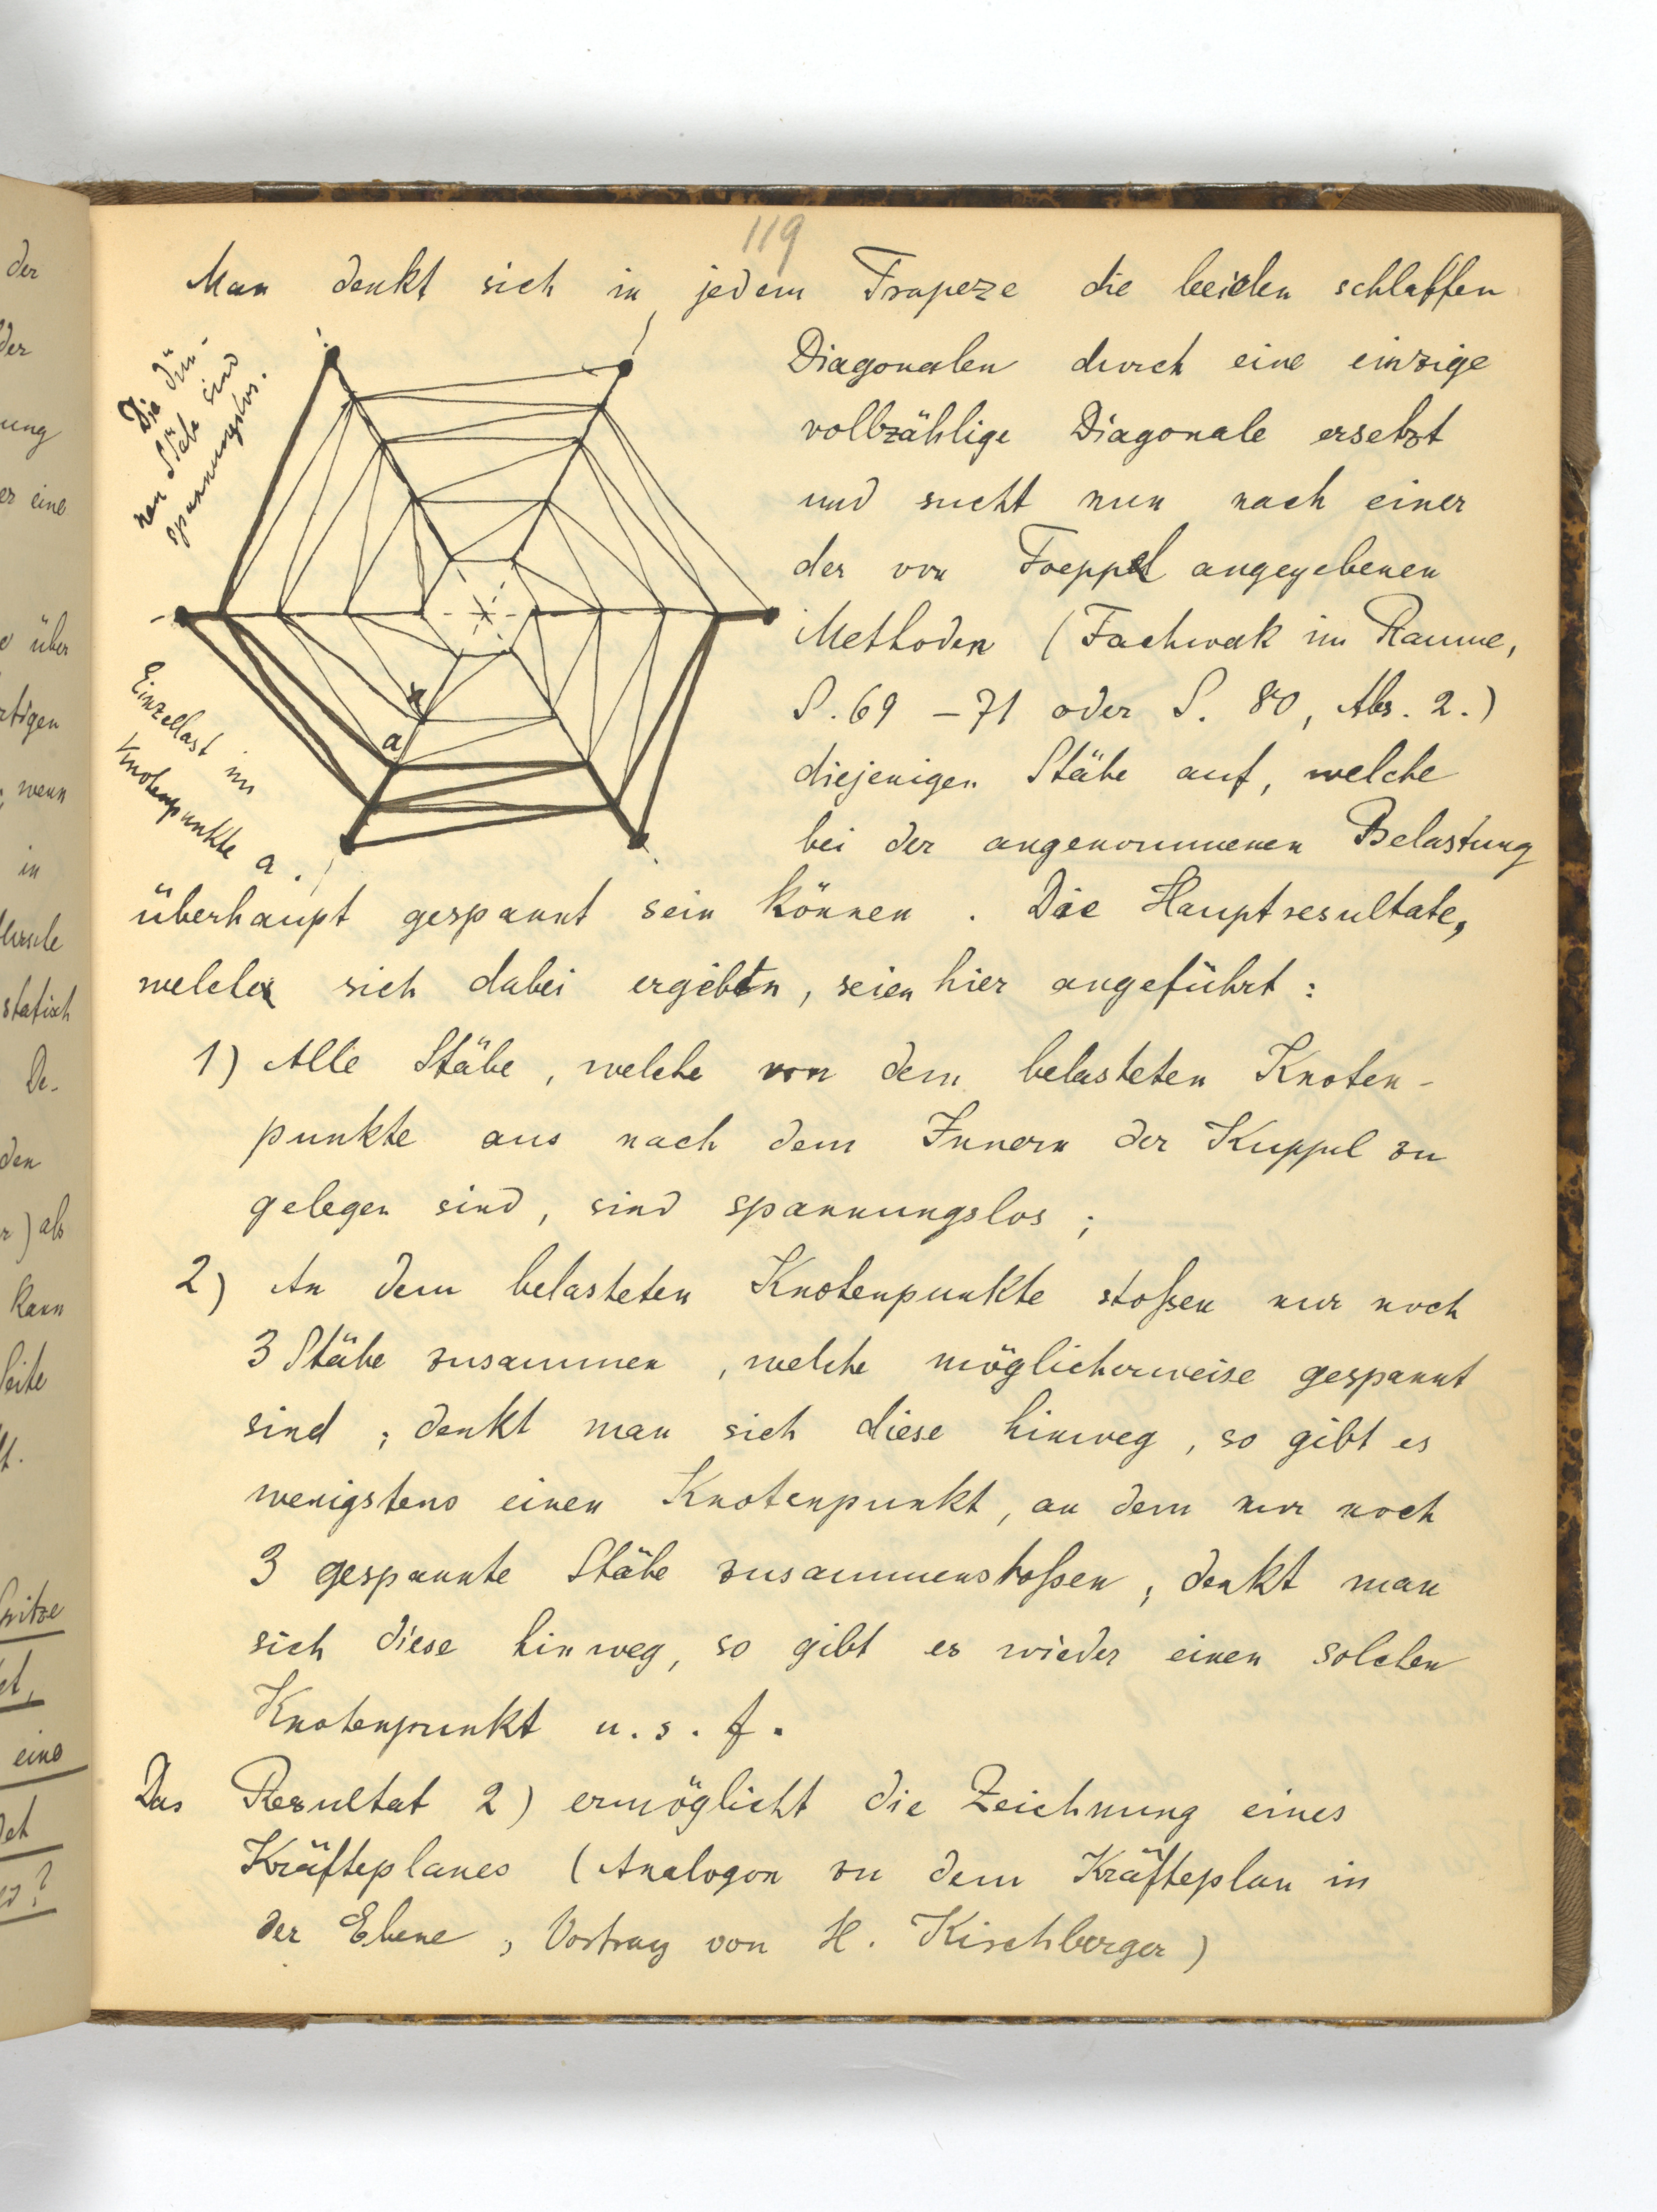 119
Man denkt sich in jedem Trapeze die beiden schlaffen
Diagonalen durch eine einzige
vollzählige Diagonale ersetzt
und sucht nun nach einer
der von Foeppl angegebenen
Methoden (Fachwerk im Raume,
S. 69 – 71 oder S. 80, Abs. 2.)
diejenigen Stäbe auf, welche
bei der angenommenen Belastung
überhaupt gespannt sein können. Die Hauptresultate,
welche sich dabei ergeben, seien hier angeführt:
1) Alle Stäbe, welche von dem belasteten Knoten-
punkte aus nach dem Innern der Kuppel zu
gelegen sind, sind spannungslos;
2) An dem belasteten Knotenpunkte stoßen nur noch
3 Stäbe zusammen, welche möglicherweise gespannt
sind; denkt man sich diese hinweg, so gibt es
wenigstens einen Knotenpunkt, an dem nur noch
3 gespannte Stäbe zusammenstoßen; denkt man
sich diese hinweg, so gibt es wieder einen solchen
Knotenpunkt u. s. f.
Das Resultat 2) ermöglicht die Zeichnung eines
Kräfteplanes (Analogon zu dem Kräfteplan in
der Ebene, Vortrag von H. Kirchberger)
Die dün-
nen Stäbe sind
spannungslos.
a
Einzellast im
Knotenpunkte a.
der
der
ung
er eine
über
rtigen
wenn
in
statisch
De-
den
r) als
kann
Seite
eine